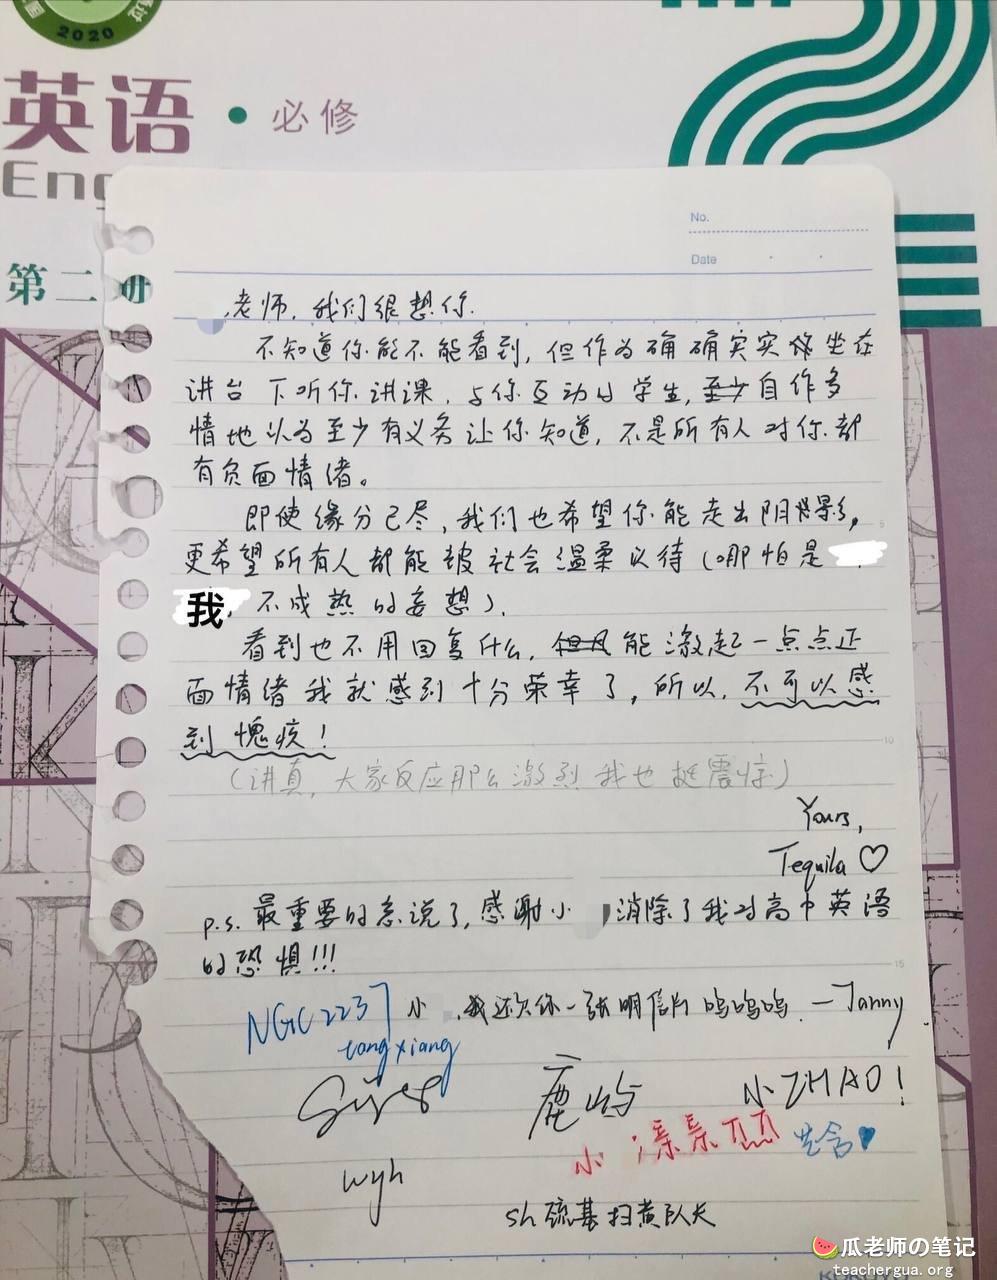 2020
英语·必修
Eng
第二册
No.
Date
老师，我们很想你.
不知道你能不能看到，但作为确确实实坐在
讲台下听你讲课，与你互动的学生，至少自作多
情地以为至少有义务让你知道，不是所有人对你都
有负面情绪。
即使缘分已尽，我们也希望你能走出阴影，
更希望所有人都能被社会温柔以待（哪怕是
我 不成熟的妄想）.
看到也不用回复什么，但凡能激起一点点正
面情绪我就感到十分荣幸了，所以，不可以感
到愧疚！
（讲真，大家反应那么激烈我也挺震惊）
Yours,
Tequila♡
p.s. 最重要的忘说了，感谢小 消除了我对高中英语
的恐惧!!!
5
10
15
NGC2237 小 ，我还欠你一张明信片呜呜呜 —Janny
tangxiang
鹿屿
小ZHAO!
wyh
sh巯基扫黄队长
瓜老师の笔记
teachergua.org